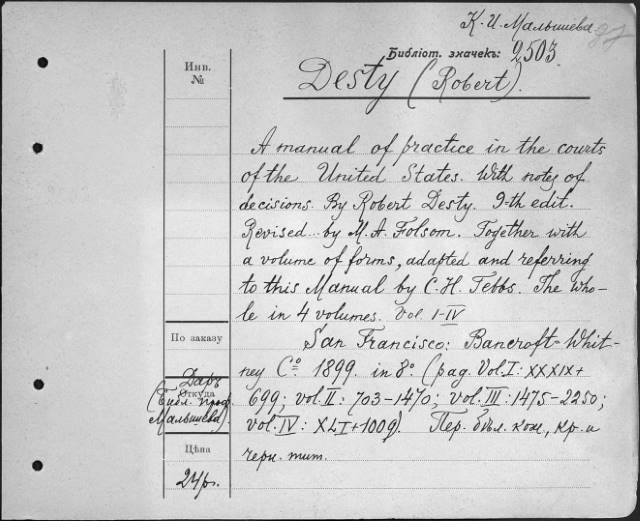 К. И. Малышева
Библіот. значекъ: 2503.
Инв.
№
Desty (Robert).
A manual of practice in the courts
of the United States. With notes of
decisions. By Robert Desty. 9-th edit.
Revised by M. A. Folsom. Together with
a volume of forms, adapted and referring
to this Manual by C. H. Tebbs. The who-
le in 4 volumes. Vol. I-IV
San Francisco: Bancroft-Whit-
ney Cº 1899 in 8º (pag. Vol. I: XXXIX+
699; vol. II: 703-1470; vol. III: 1475-2250;
vol. IV: XLI+1009). Пер. бѣл. кож., кр. и
черн. тит.
По заказу
Даръ
Откуда
(Библ. проф.
Малышева).
Цѣна
24 р.